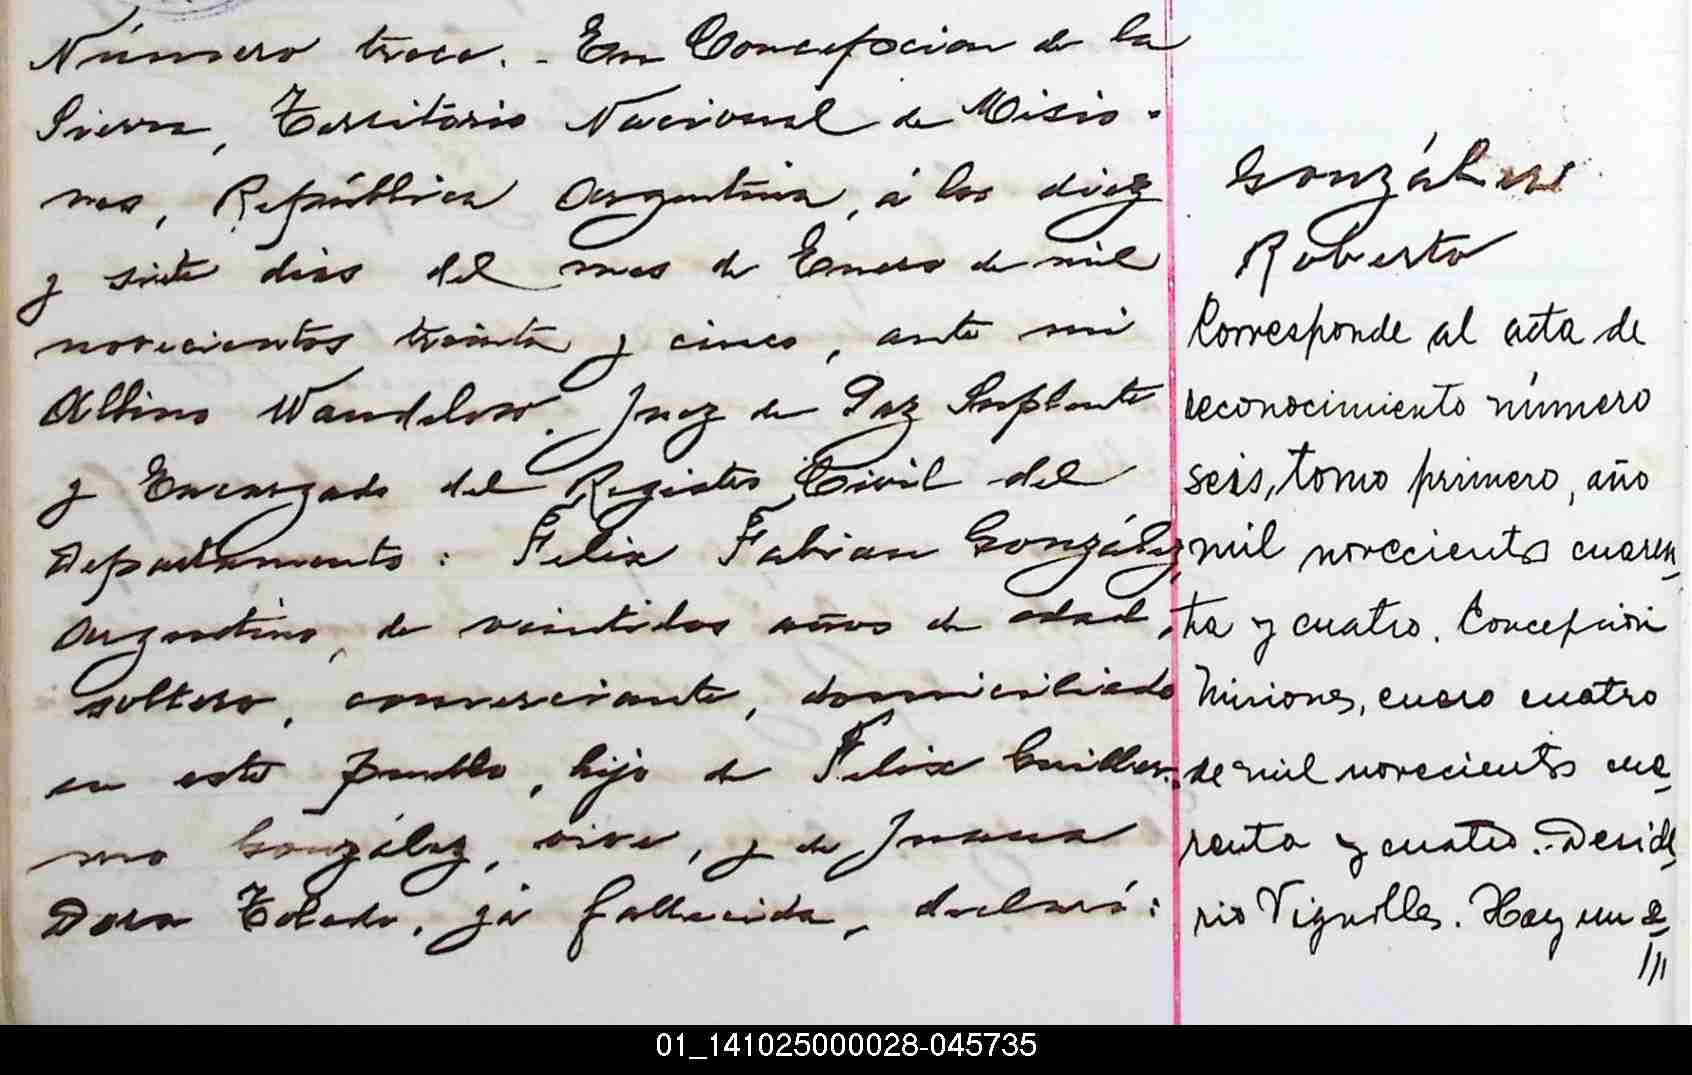 Número trece. - En Concepcion de la
Sierra, Territorio Nacional de Misio-
nes, República Argentina, á los diez
y siete dias del mes de Enero de mil
novecientos treinta y cinco, ante mi
Albino Wandelow. Juez de Paz Suplente
y Encargado del Registro Civil del
Departamento: Felix Fabian González,
Argentino, de veintidos años de edad,
soltero, comerciante, domiciliado
en este pueblo, hijo de Felix Guiller-
mo González, vive, y de Juana
Dora Toledo, ya fallecida, declaró:
González
Roberto
Corresponde al acta de
reconocimiento número
seis, tomo primero, año
mil novecientos cuaren-
ta y cuatro. Concepción
Misiones, enero cuatro
de mil novecientos cua-
renta y cuatro.- Deside-
rio Vignolles. Hay un s-
///
01_141025000028-045735